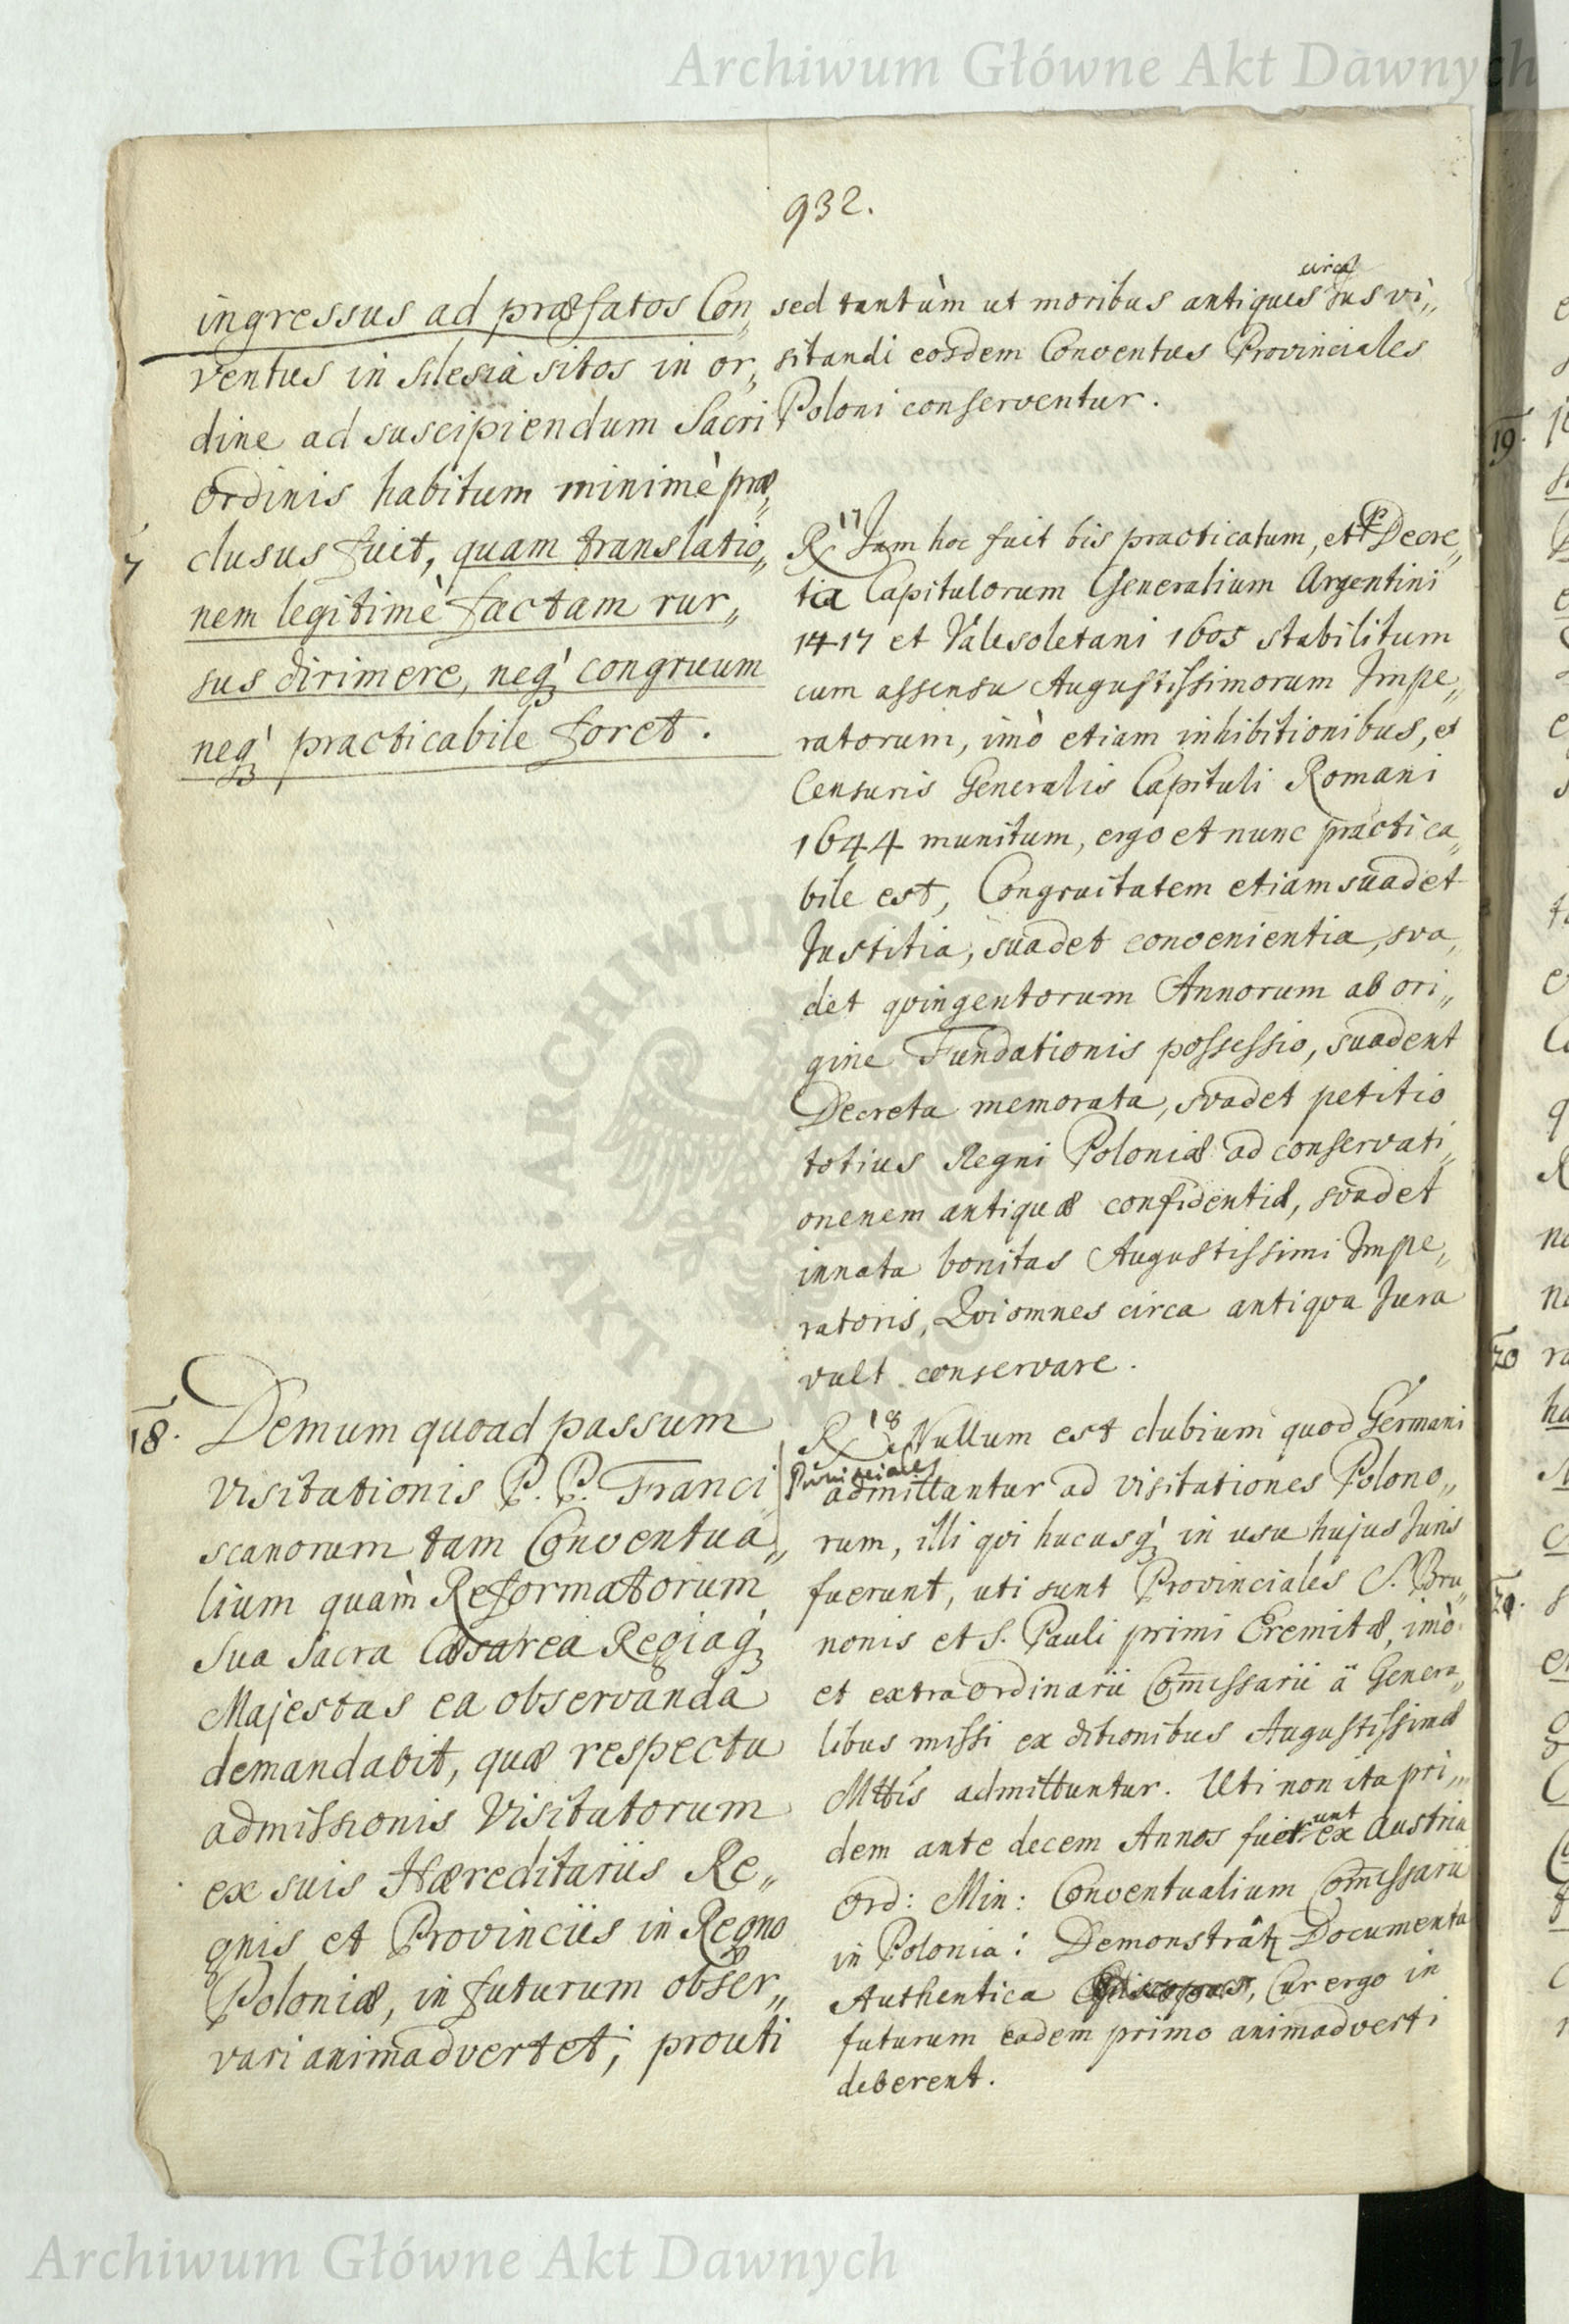 Archiwum Główne Akt Dawnych
932.
ingressus ad præfatos Con„
ventus in Silesia sitos in or„
dine ad suscipiendum Sacri
Ordinis habitum minimè præ„
clusus fuit, quam translatio„
nem legitimè factam rur„
sus dirimere, neq; congruum
neq; practicabile foret.
18. Demum quoad passum
Visitationis P. P. Franci
scanorum tam Conventua„
lium quàm Reformatorum
Sua Sacra Cæsarea Regiaq;
Majestas ea observanda
demandabit, quæ respectu
admissionis Visitatorum
ex suis Hæreditariis Re„
gnis et Provinciis in Regno
Poloniæ, in futurum obser„
vari animadvertet; prouti
sed tantùm ut moribus antiques circa Jus vi„
sitandi eosdem Conventus Provinciales
Poloni conserventur.
R 17 Jam hoc fuit bis practicatum, et Decre„
tia Capitulorum Generalium Argentini
1417 et Valesoletani 1605 stabilitum
cum assensu Augustissimorum Impe„
ratorum, imò etiam inhibitionibus, et
Censuris Generalis Capituli Romani
1644 munitum, ergo et nunc practica„
bile est, Congruitatem etiam suadet
Justitia, suadet convenientia, sva„
det qvingentorum Annorum ab ori„
gine Fundationis possessio, suadent
Decreta memorata, svadet petitio
totius Regni Poloniæ ad conservati„
onenem antiquæ confidentiæ, svadet
innata bonitas Augustissimi Impe„
ratoris, Qvi omnes circa antiqva Jura
vult conservare.
R 18 Nullum est dubium quod Germani
Provinciales admittantur ad visitationes Polono„
rum, illi qvi hucusq; in usu hujus Juris
fuerunt, uti sunt Provinciales S. Bru„
nonis et S. Pauli primi Eremitæ, imò
et extraordinarii Com̃issarii à Genera„
libus missi ex ditionibus Augustissimæ
Mttis admittuntur. Uti non ita pri„
dem ante decem Annos fuerunt ex Austria
Ord: Min: Conventualium Com̃issarii
in Polonia: Demonstratz Documenta
Authentica , Cur ergo in
futurum eadem primo animadverti
deberent.
19.
20
21.
ARCHIWUM GŁÓWNE AKT DAWNYCH
Archiwum Główne Akt Dawnych